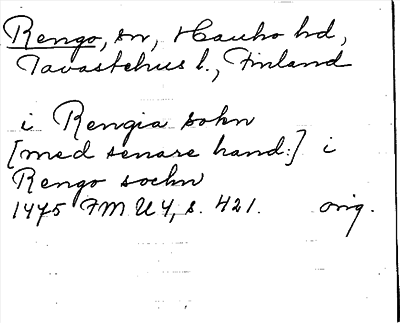 Rengo, sn, Hauho hd,
Tavastehus l., Finland
i Rengia sokn
[med senare hand:] i
Rengo sochn
1475 FMU 4, s. 421. orig.